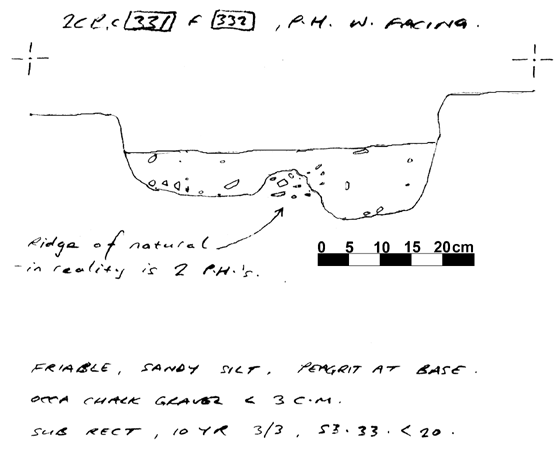 2CP, C 331 F 332, P.H. W. FACING.
Ridge of natural
- in reality is 2 P.H.'s.
0 5 10 15 20cm
FRIABLE, SANDY SILT. PEAGRIT AT BASE.
OCCA CHALK GRAVEL < 3 C.M.
SUB RECT, 10 YR 3/3, 53.33.<20.